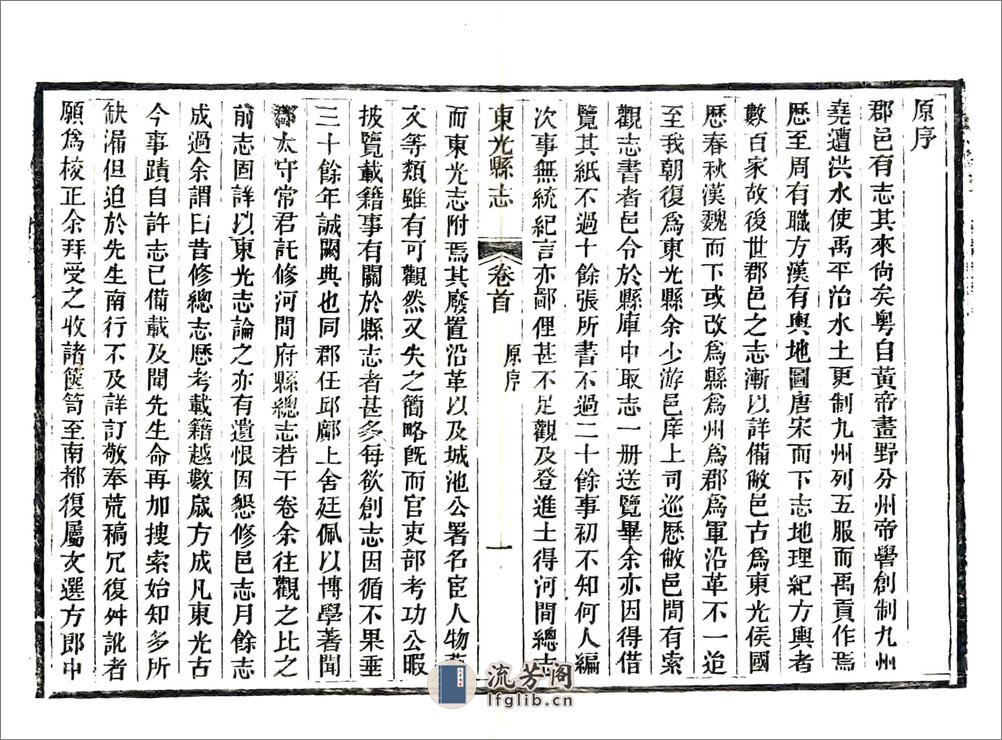 原序
郡邑有志其來尚矣粵自黃帝畫野分州帝嚳創制九州
堯遭洪水使禹平治水土更制九州列五服而禹貢作焉
歷至周有職方漢有輿地圖唐宋而下志地理紀方輿者
數百家故後世郡邑之志漸以詳備敝邑古為東光侯國
歷春秋漢魏而下或改為縣為州為郡為軍沿革不一迨
至我朝復為東光縣余少游邑庠上司巡歷敝邑間有索
觀志書者邑令於縣庫中取志一册送覽畢余亦因得借
覽其紙不過十餘張所書不過二十餘事初不知何人編
次事無統紀言亦鄙俚甚不足觀及登進士得河間總志
東光縣志 卷首 原序 一
而東光志附焉其廢置沿革以及城池公署名宦人物
文等類雖有可觀然又失之簡略旣而官吏部考功公暇
披覽載籍事有關於縣志者甚多每欲創志因循不果垂
三十餘年誠闕典也同郡任邱鄺上舍廷佩以博學著聞
太守常君託修河間府縣總志若干卷余往觀之比之
前志固詳以東光志論之亦有遺恨因懇修邑志月餘志
成過余謂曰昔修總志歷考載籍越數歲方成凡東光古
今事蹟自許志已備載及聞先生命再加搜索始知多所
缺漏但迫於先生南行不及詳訂敬奉荒稿冗復舛訛者
願為校正余拜受之收諸篋笥至南都復屬文選方郎中
流芳阁
lfglib.cn